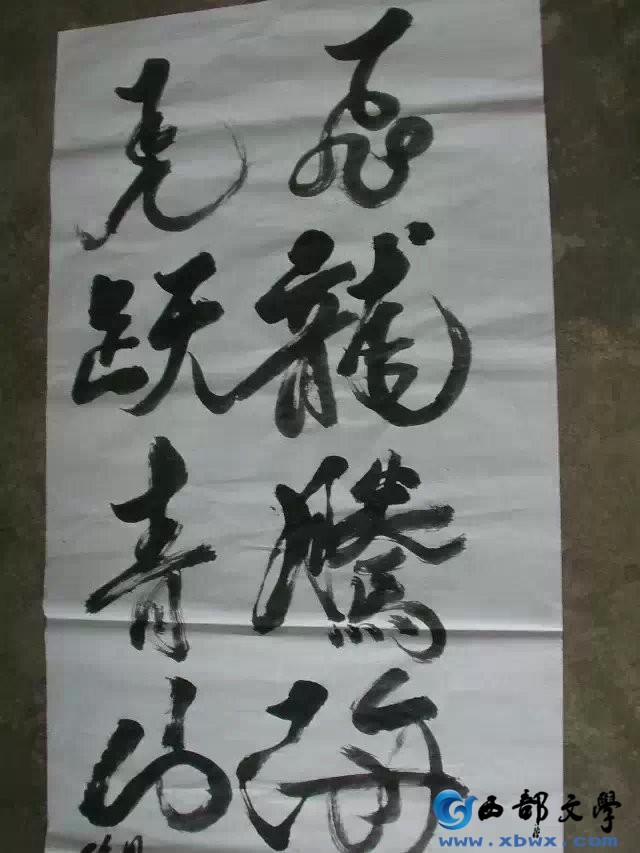 飛龍騰海
虎跃青山
西部文學
www.xbwx.com